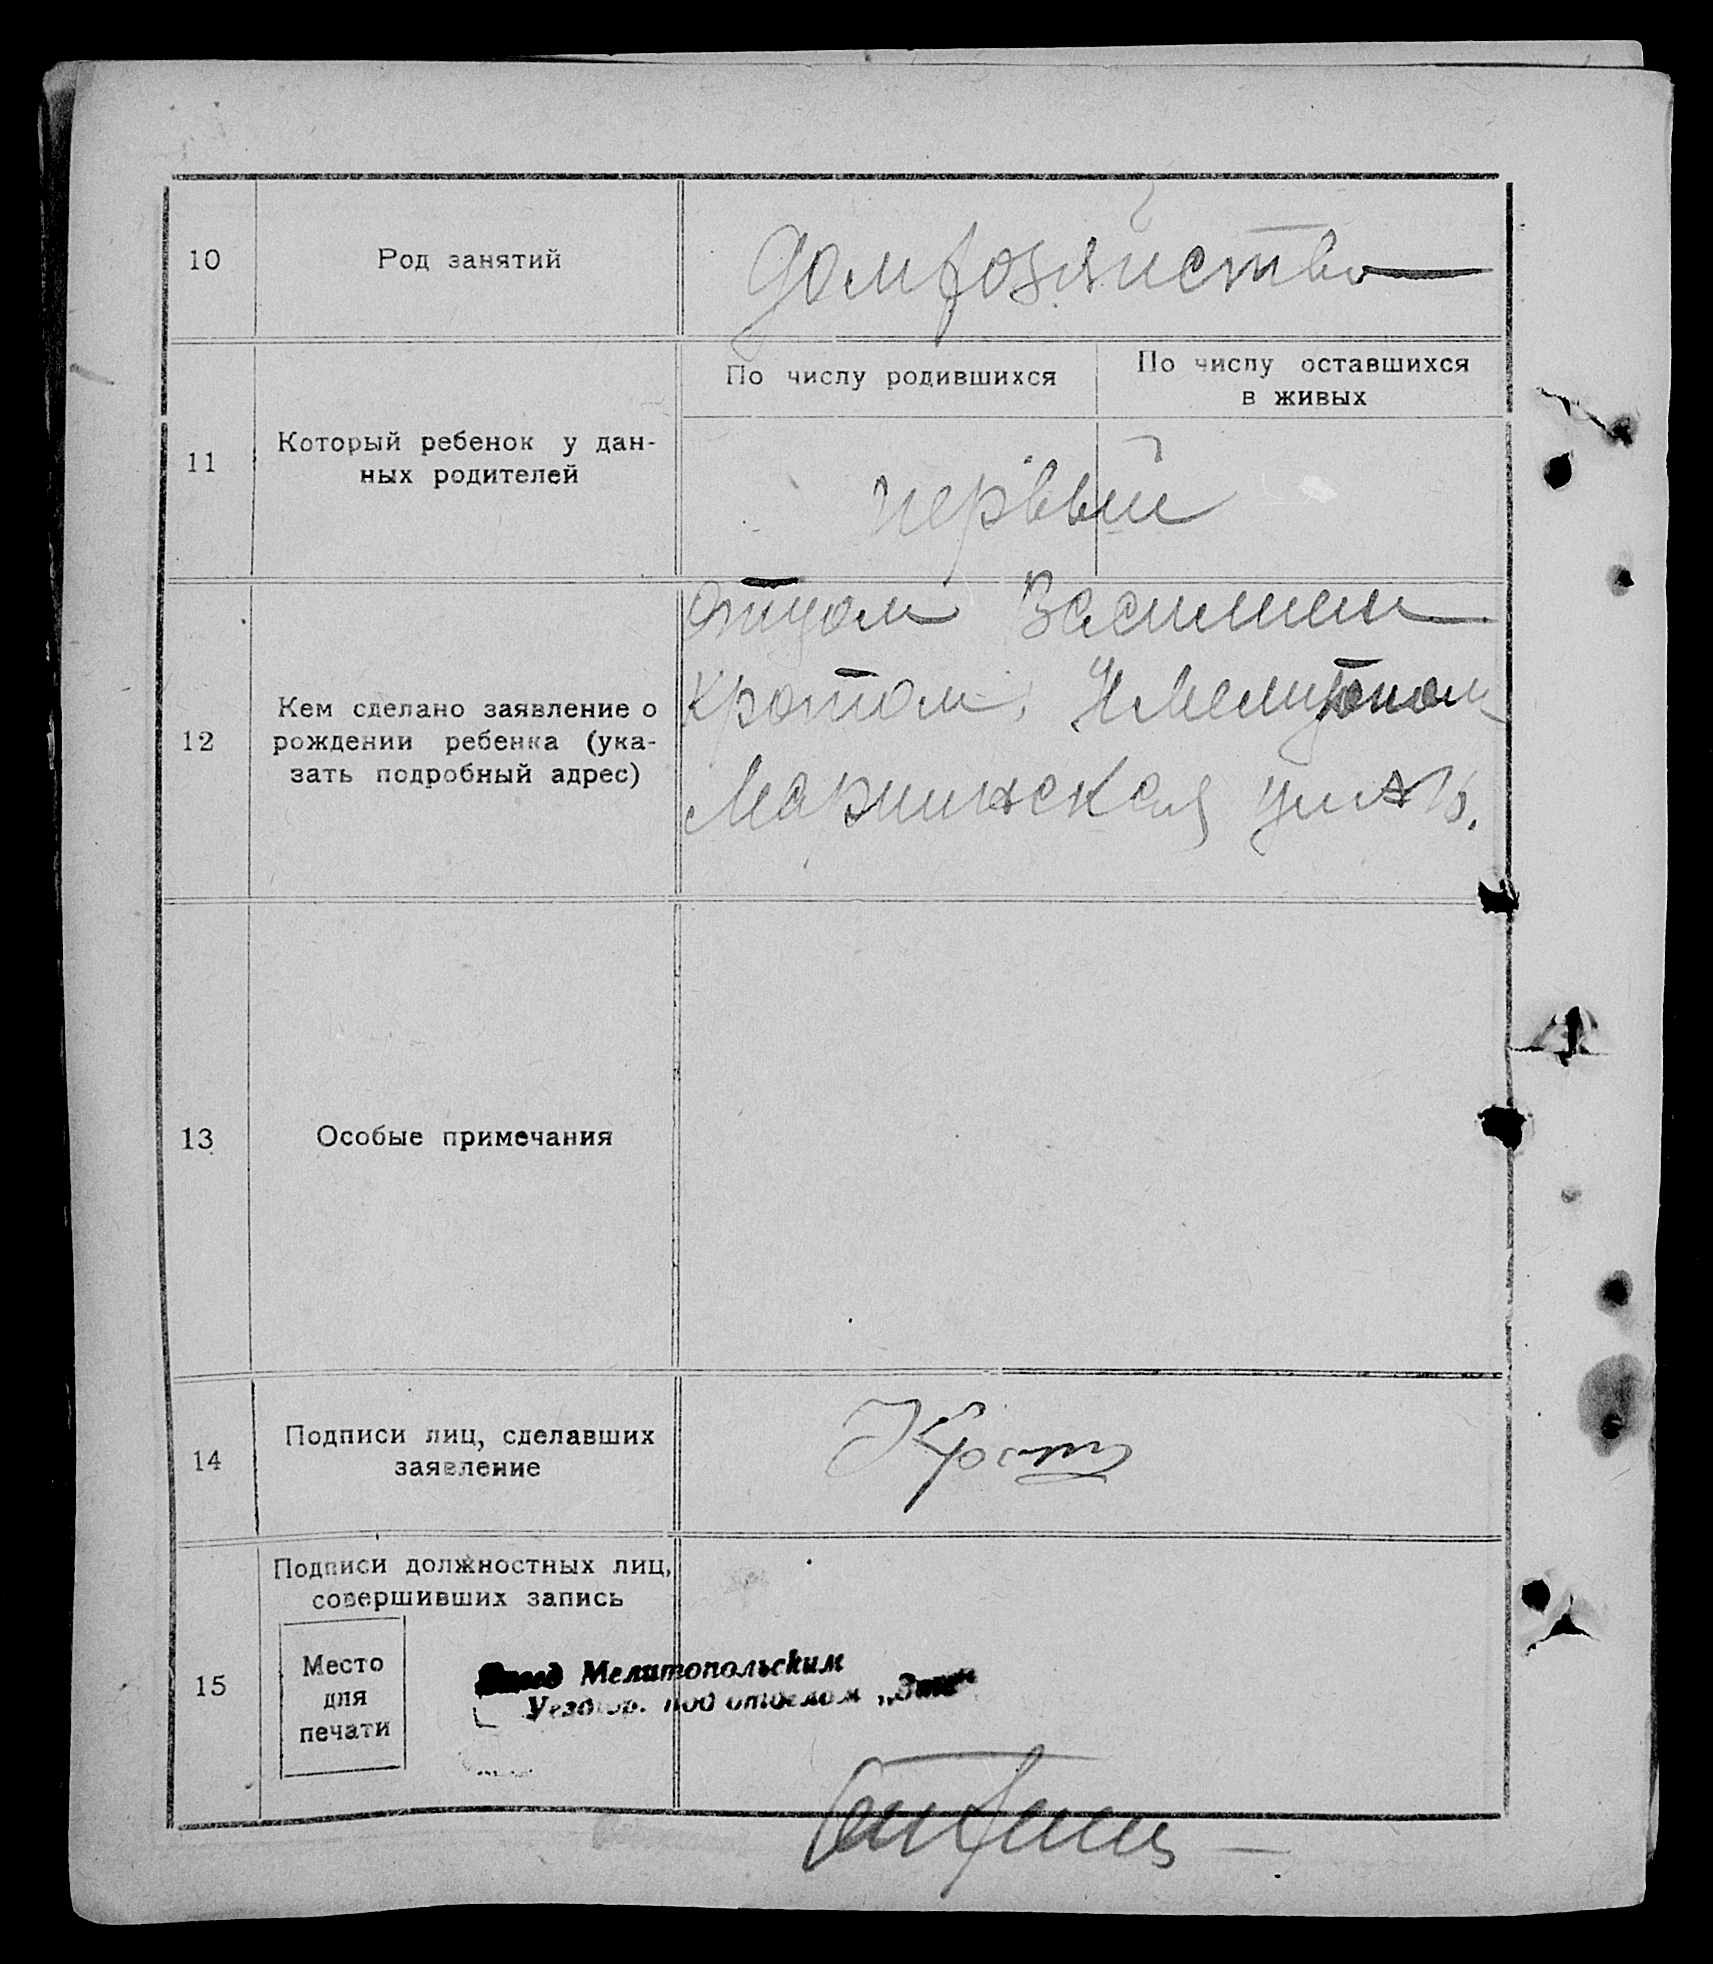 10 Род занятий домхозяйство
По числу родившихся
По числу оставшихся
в живых
11 Который ребенок у дан-
ных родителей
первый
12 Кем сделано заявление о
рождении ребенка (ука-
зать подробный адрес)
отцом Василием
Кротом, Мелитополь
Мариинская ул
13 Особые примечания
14 Подписи лиц, сделавших
заявление
Крот
15 Подписи должностных лиц,
совершивших запись
Место
для
печати
Мелитопольским
под отделом „Загс"